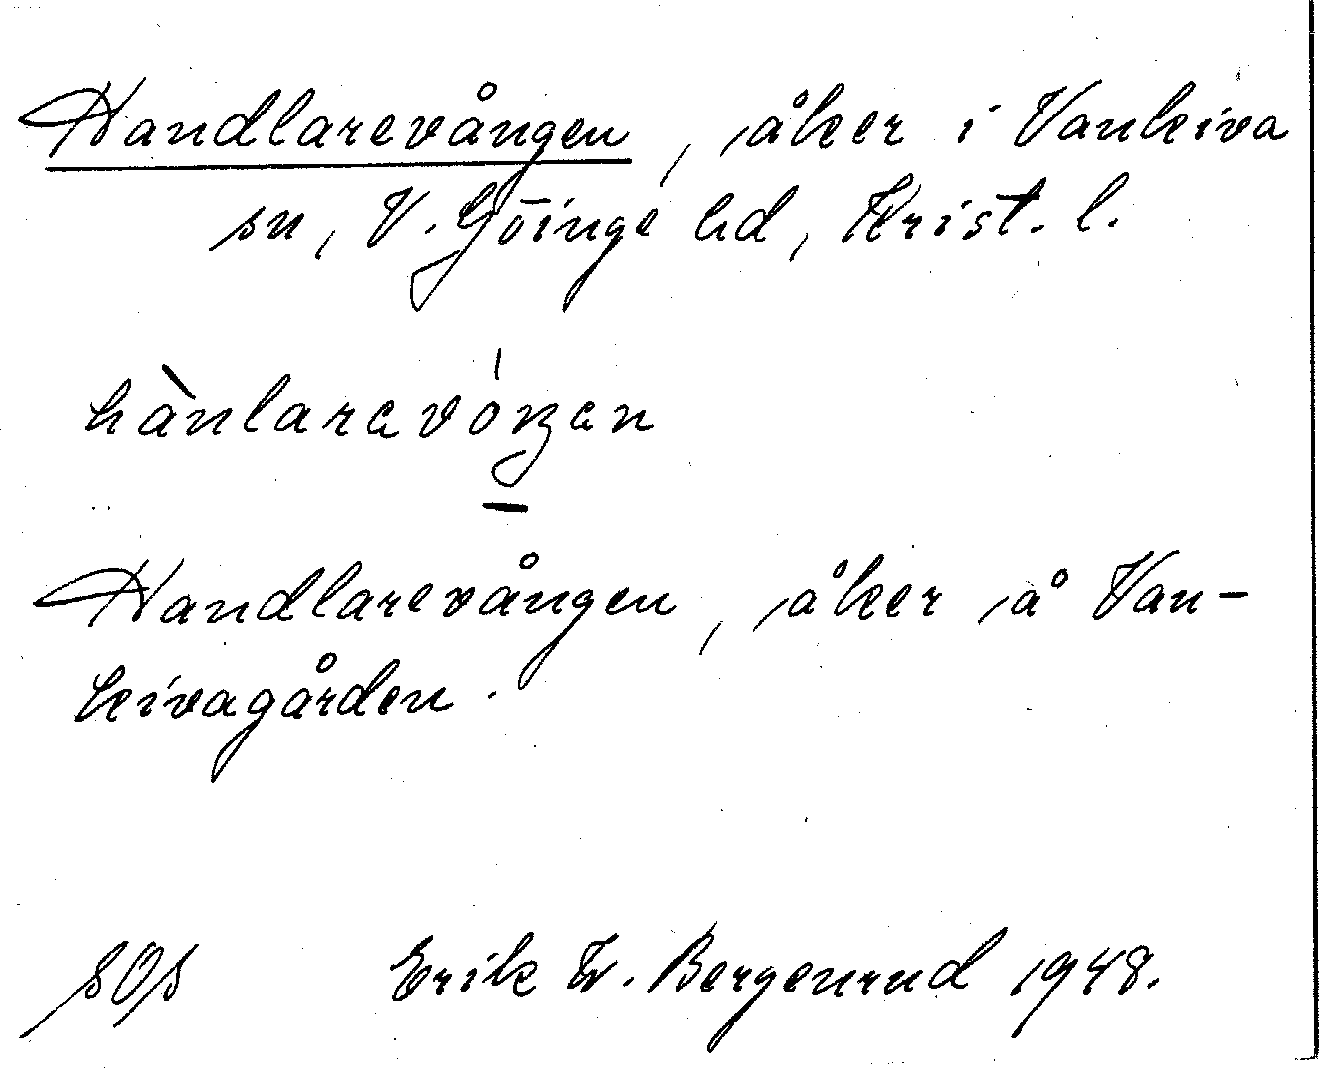 Handlarevången, åker i Vankiva
sn, V. Göinge hd, Krist. l.
hànlaravóŋen
Handlarevången, åker å Van-
kivagården.
sOs Erik W. Bergenrud 1948.